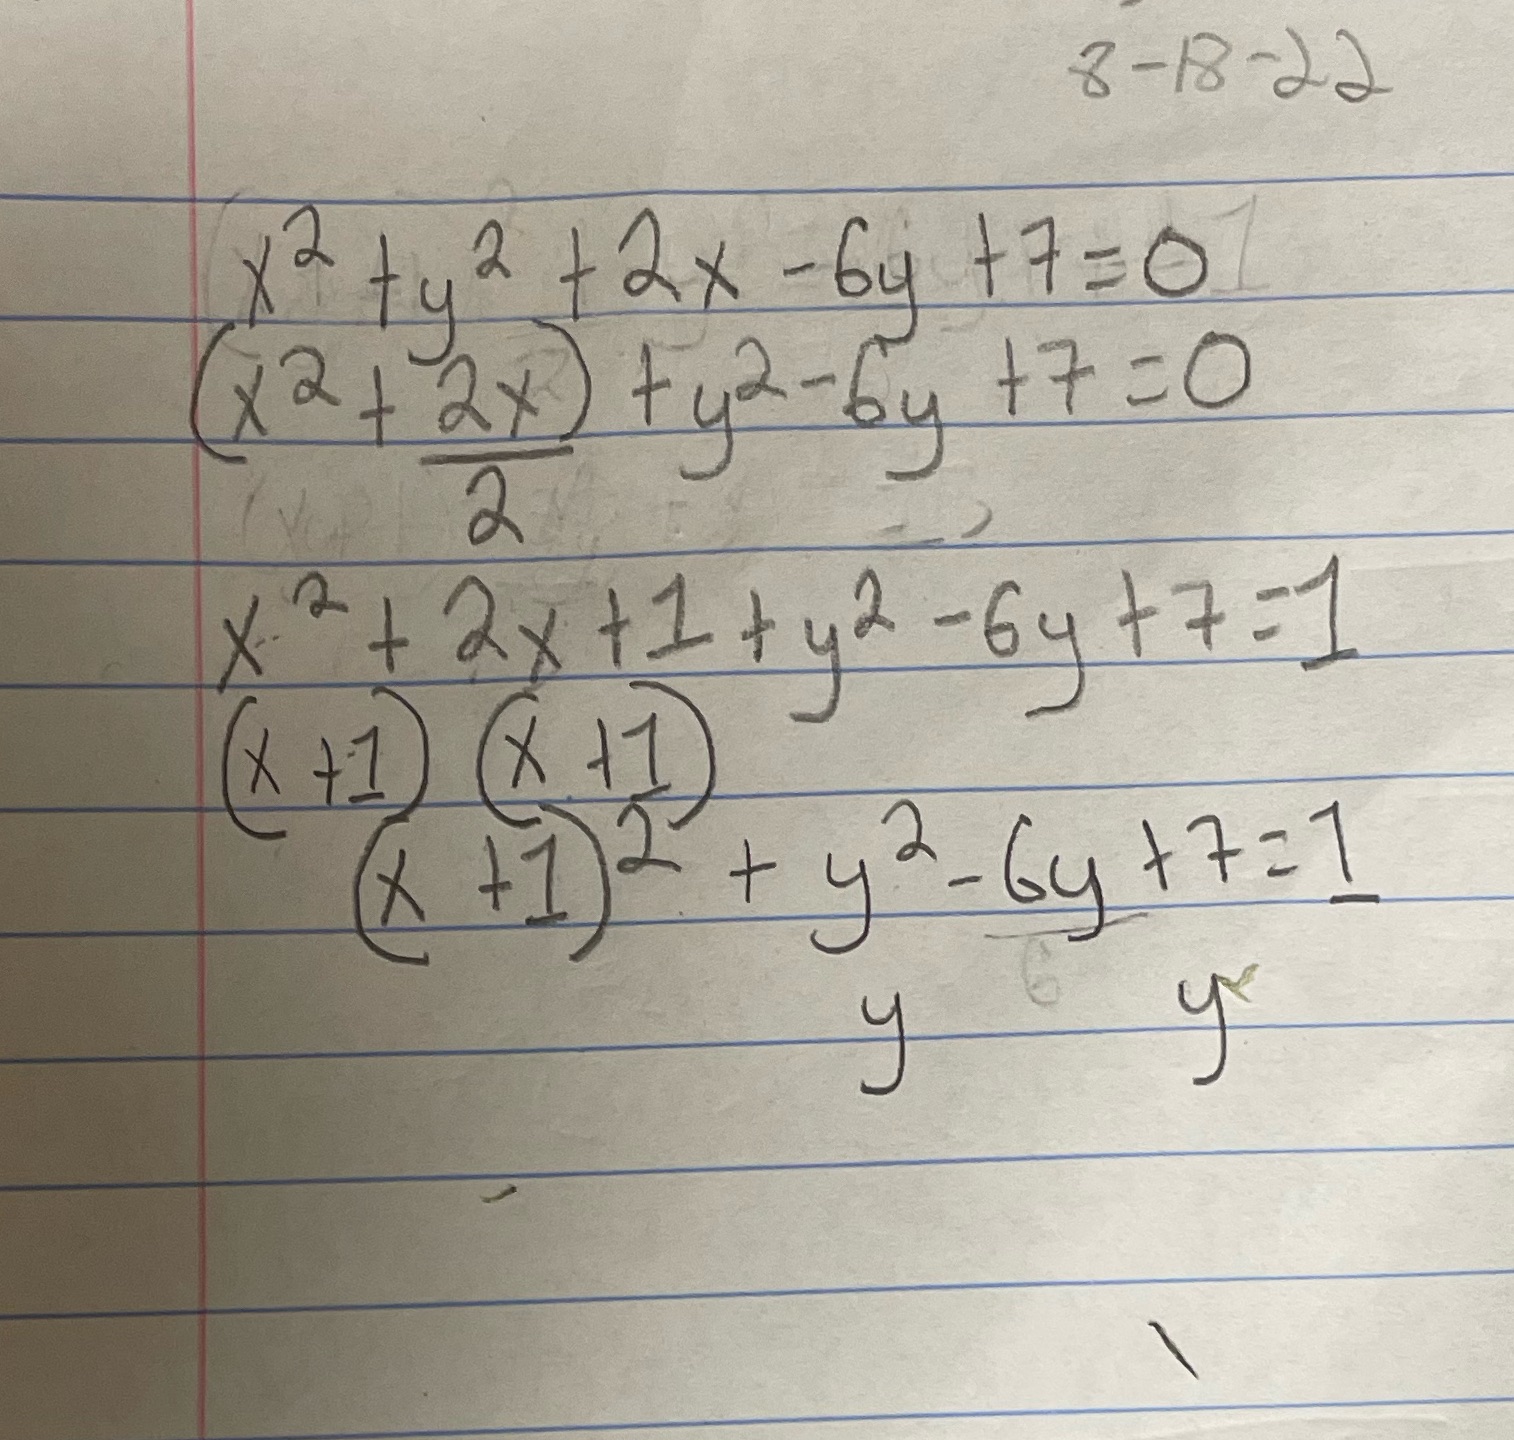 8-18-22
x² + y² + 2x - 6y + 7 = 0
(x² + 2x) + y² - 6y + 7 = 0
2
x² + 2x + 1 + y² - 6y + 7 = 1
(x + 1) (x + 1)
(x + 1)² + y² - 6y + 7 = 1
6
y y